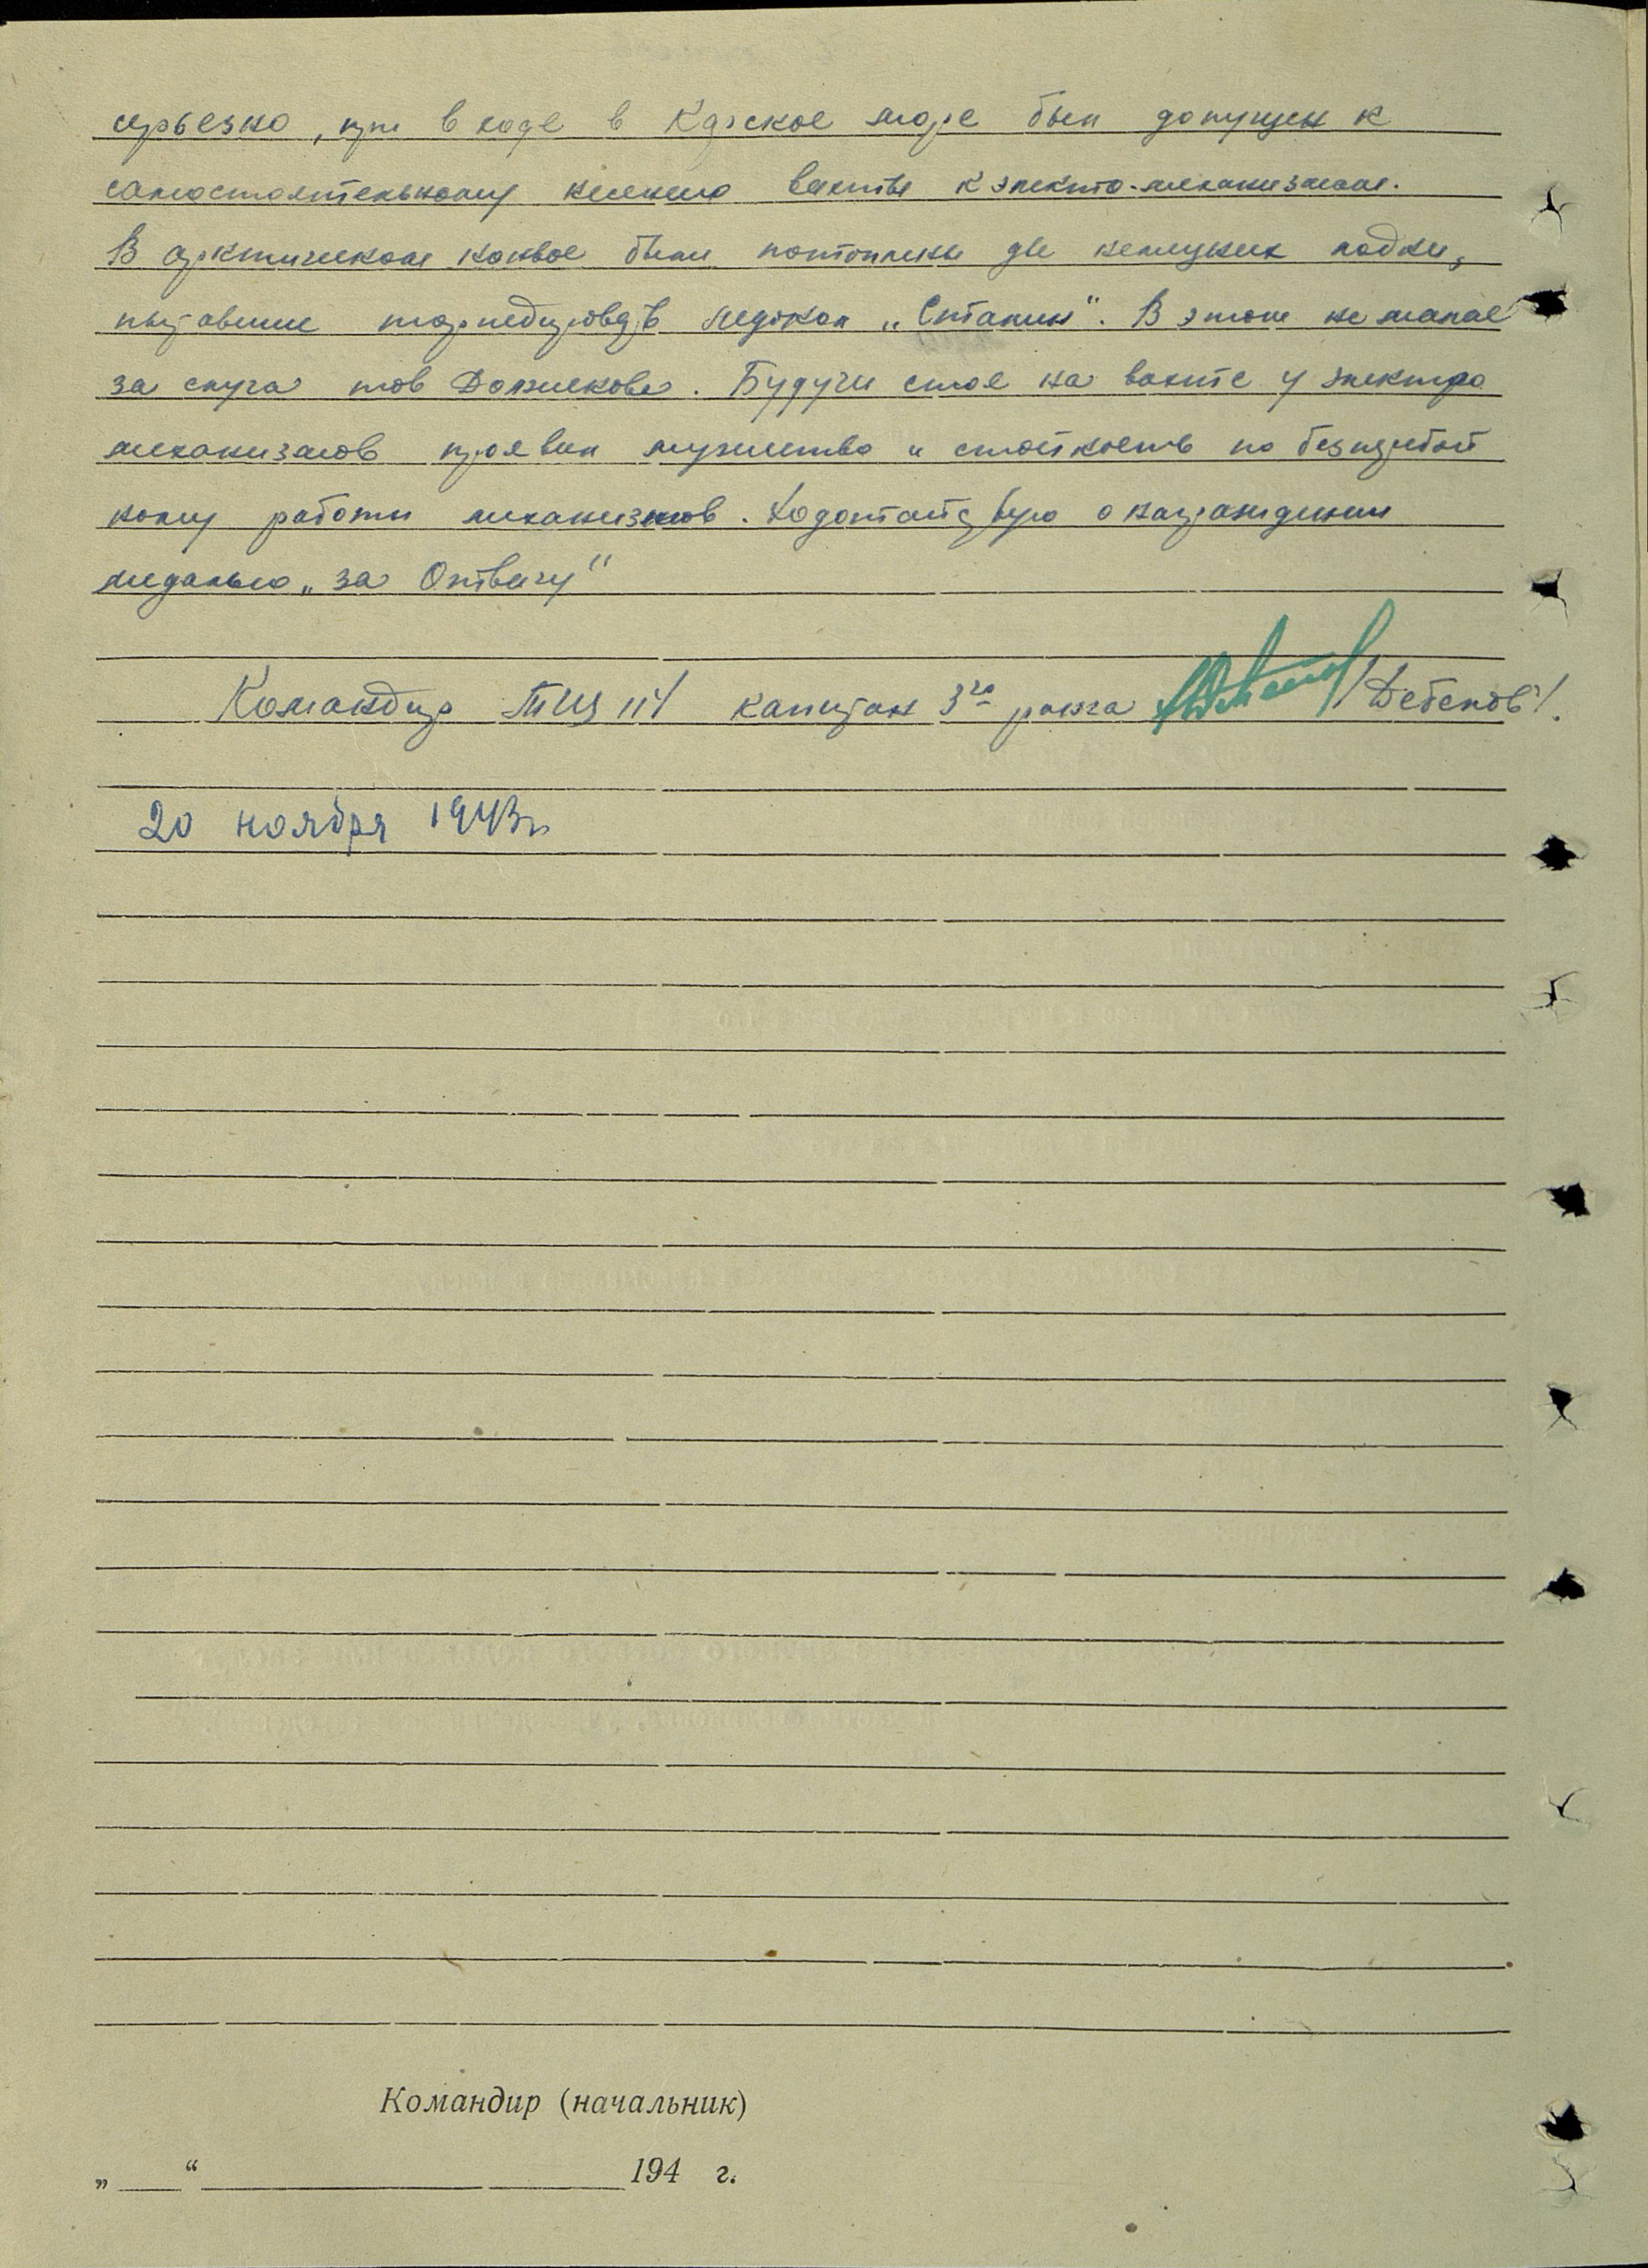 серьезно, при входе в Карское море был допущен к
самостоятельному несению вахты к электо-механизмам.
В арктическом конвое были потоплены две немецких лодки,
пытавшие торпедировать ледокол „Сталин". В этом не малая
заслуга тов Должикова. Будучи стоя на вахте у электро
механизмов проявил мужество и стойкость по безперебой
ному работы механизмов. Ходотайствую о награждении
медалью „за Отвагу"
Командир ТЩ 114 капитан 3го ранга /Дебелов/.
20 ноября 1943г
Командир (начальник)
„ “ 194 г.